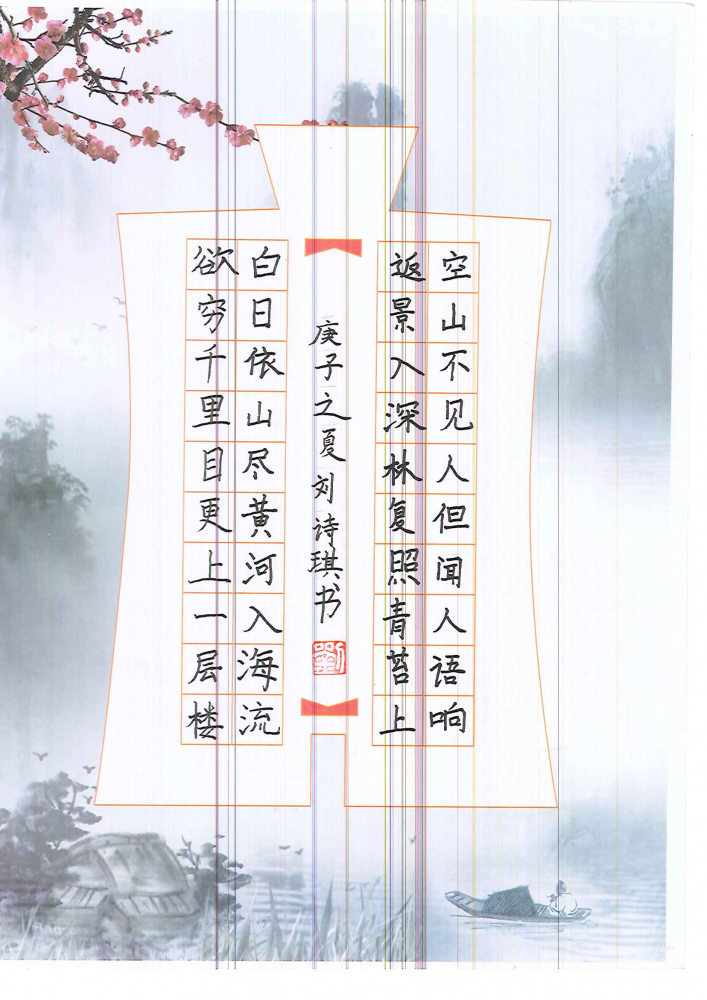 空山不见人但闻人语响
返景入深林复照青苔上
庚子之夏刘诗琪书
劉
白日依山尽黄河入海流
欲穷千里目更上一层楼